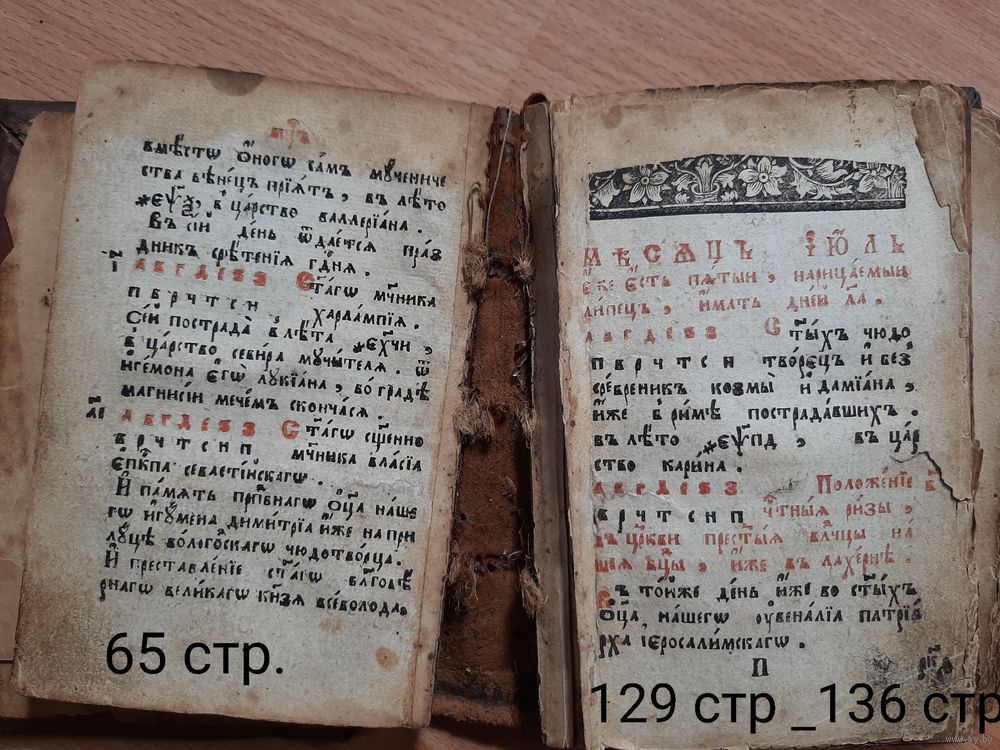 вмѣстѡ ѻ҆́ногѡ са́мъ мꙋ́чениче
ства вѣне́цъ прїѧ́тъ , въ лѣ́то
в̾ ца́рство валлерїа́на .
Въ сі́й де́нь ѿдае́тсѧ пра́з
дникъ срѣ́тенїѧ гд҇нѧ .
і҃ а в г д е ѕ з Ст҃а́гѡ мч҃ника
п в р ч т с н , харла́мпїѧ .
Се́й пострада̀ в лѣ́та ҂ѕ҃х҃чи ,
в̾ ца́рство севи́ра мꙋчи́телѧ . ѿ
и҆ге́мона є҆гѡ̀ лꙋкїа́на , во́ гра́дѣ
магнисі́и мече́мъ сконча́сѧ .
а҃і а в г д е ѕ з Ст҃а́гѡ сщ҃е́нно
в р ч т с н п мч҃ника вла́сїѧ
є҆пк҇па севасті́йскагѡ .
И҆ па́мѧть прпⷣбнагѡ ѻ҆ц҃а̀ на́ше
гѡ и҆гꙋ́мена дими́трїѧ и҆́же на при
лꙋ́цѣ во́логоскагѡ чюдотво́рца .
И҆ преставле́нїе ст҃а́гѡ бл҃говѣ́
рнагѡ вели́кагѡ кн҃зѧ все́волода .
65 стр.
МѢСѦЦЪ І҆Ю́ЛЬ
и҆́же є҆́сть пѧ́тыи , нарица́емыи
ли́пецъ , и҆́мать дне́й л҃а .
а в г д е ѕ з Ст҃ы́хъ чюдо
п в р ч т с н тво́рецъ и҆ без̾
сре́бреникъ козмы̀ и҆ дамїа́на ,
и҆́же в̾ ри́мѣ пострада́вшихъ .
въ лѣ́то ҂єѱ҃пд , въ ца́р
ство кари́на .
а в г д е ѕ з Положе́нїе в҃
в р ч т с н п чⷭ҇тны́ѧ ри́зы ,
въ цр҃кви прест҃ы́ѧ влⷣчцы на́
шеѧ бц҃ы , и҆́же въ лахе́рнѣ .
Въ то́йже де́нь и҆́же во ст҃ы́хъ
ѻ҆ц҃а̀ на́шегѡ ᲂу҆вена́лїа патрїа́
рха і҆еросали́мскагѡ .
П
129 стр _136 стр
www.ay.by